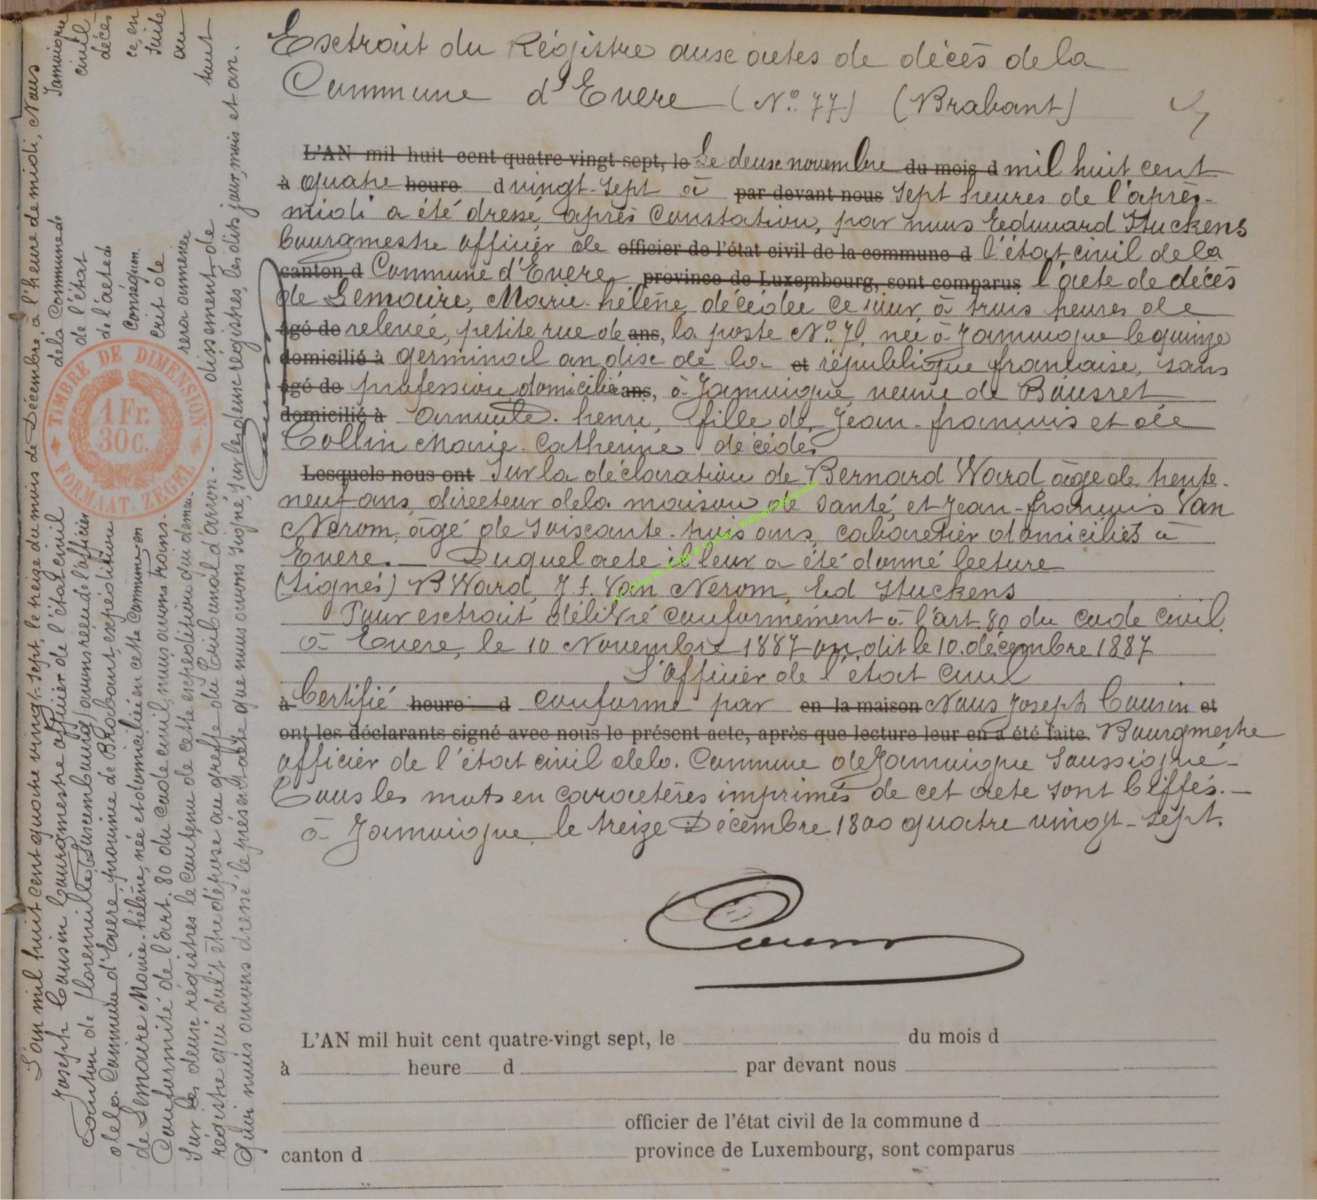 Extrait du Régistre aux actes de décès de la
Commune d'Evere (N° 77) (Brabant)
L'AN mil huit cent quatre-vingt sept, le Le deux novembre du mois d mil huit cent
à quatre heure d vingt-sept à par devant nous sept heures de l'après-
midi a été dressé, après constation, par nous Edouard Stuckens
bourgmestre officier de officier de l'état civil de la commune d l'état civil de la
canton d Commune d'Evere, province de Luxembourg, sont comparus l'acte de décès
de Lemaire, Marie-hélène, décédée ce jour, à trois heures de
âgé de relevée, petite rue de ans, la poste N° 70, née à Jamoigne le quinze
domicilié à germinal an dix de la et république française, sans
âgé de profession, domiciliée ans, à Jamoigne, veuve de Bousret
domicilié à henri, fille de Jean-françois et de
Collin Marie-Catherine décédés
Lesquels nous ont Sur la déclaration de Bernard Ward âgé de trente-
neuf ans, directeur de la maison de santé, et Jean-françois Van
Nerom, âgé de soixante-huis ans, cabaretier domiciliés à
Evere. — Duquel acte il leur a été donné lecture
(Signés) B Ward, J. f. Van Nerom, Ed Stuckens
Pour extrait délivré conformément à l'art. 80 du code civil
à Evere, le 10 Novembre 1887 on dit le 10 décembre 1887
L'Officier de l'état civil
à Certifié heure d conforme par en la maison Nous Joseph Cousin et
ont les déclarants signé avec nous le présent acte, après que lecture leur en a été faite. Bourgmestre
officier de l'état civil de la Commune de Jamoigne Soussigné-
Tous les mots en caractères imprimés de cet acte sont biffés. —
à Jamoigne, le treize Décembre 1800 quatre vingt-sept.
Cousin
L'AN mil huit cent quatre-vingt sept, le du mois d
à heure d par devant nous
officier de l'état civil de la commune d
canton d province de Luxembourg, sont comparus
L'an mil huit cent quatre vingt-sept, le treize du mois de Décembre à l'heure de midi, Nous
Joseph Cousin bourgmestre officier de l'état civil de la Commune de Jamoigne
Canton de florenville (Luxembourg) avons reçu de l'officier de l'état civil
de la Commune d'Evere province de Brabant, expédition de l'acte de décès
de Lemaire Marie-hélène, née et domiciliée en cette Commune en conséquen ce, en
Conformité de l'art. 80 du code civil, nous avons trans- crit de suite
sur les deux régistres le contenu de cette expédition qui deme- rera annexée au
régistre qui doit être déposé au greffe du Tribunal d'arron- dissement, de tout
Quoi nous avons dressé le présent acte que nous avons signé, sur les deux régistres, les dits jour, mois et an.
Cousin
TIMBRE DE DIMENSION
1 Fr.
30c.
FORMAAT.ZEGEL